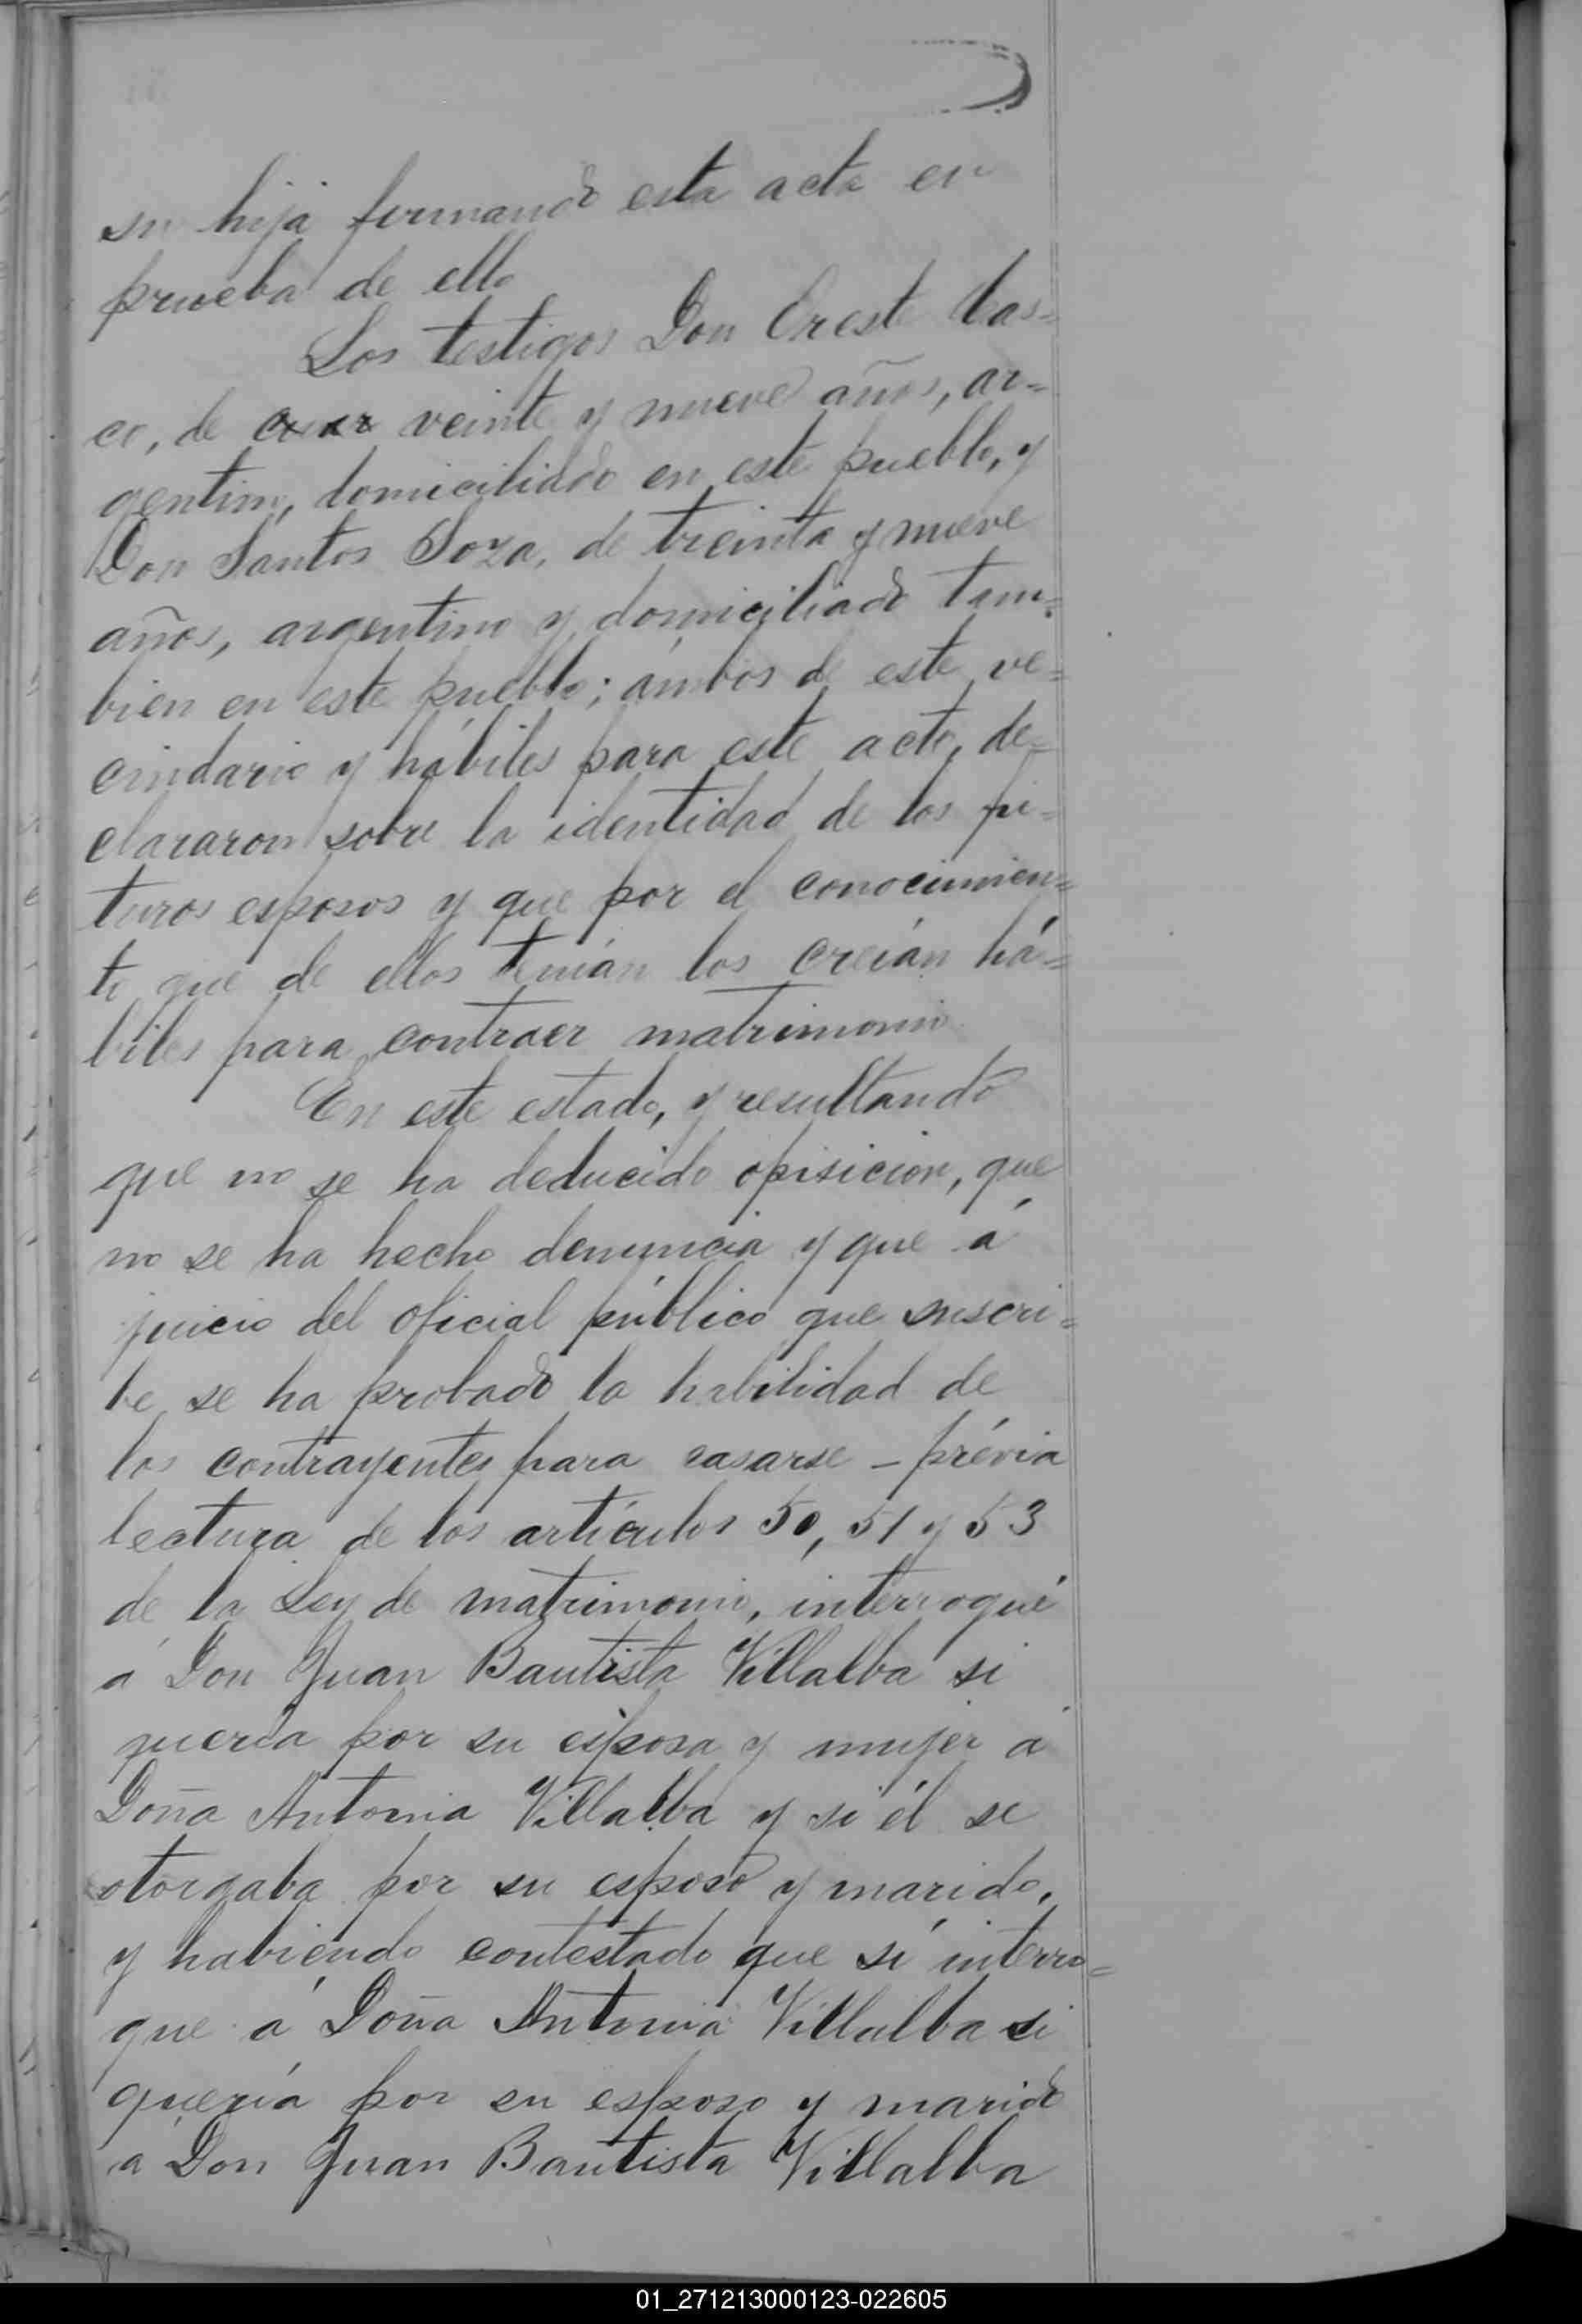 su hija firmando esta acta en
prueba de ello
Los testigos Don Oreste Cas=
co, de veinte y nueve años, ar=
gentino, domiciliado en este pueblo, y
Don Santos Soza, de treinta y nueve
años, argentino y domiciliado tam=
bien en este pueblo; ámbos de este ve=
cindario y hábiles para este acto, de=
clararon sobre la identidad de los fu=
turos esposos y que por el conocimien=
to que de ellos tenían los creían há=
biles para contraer matrimonio
En este estado, y resultando
que no se ha deducido opisicion, que
no se ha hecho denuncia y que á
juicio del oficial público que suscri=
be se ha probado la habilidad de
los contrayentes para casarse – prévia
lectura de los artículos 50, 51 y 53
de la Ley de matrimonio, interrogué
á Don Juan Bautista Villalba si
quería por su esposa y mujer á
Doña Antonia Villalba y si él se
otorgaba por su esposo y marido,
y habiendo contestado que sí interro=
gue á Doña Antonia Villalba si
quería por su esposo y marido
á Don Juan Bautista Villalba
01_271213000123-022605